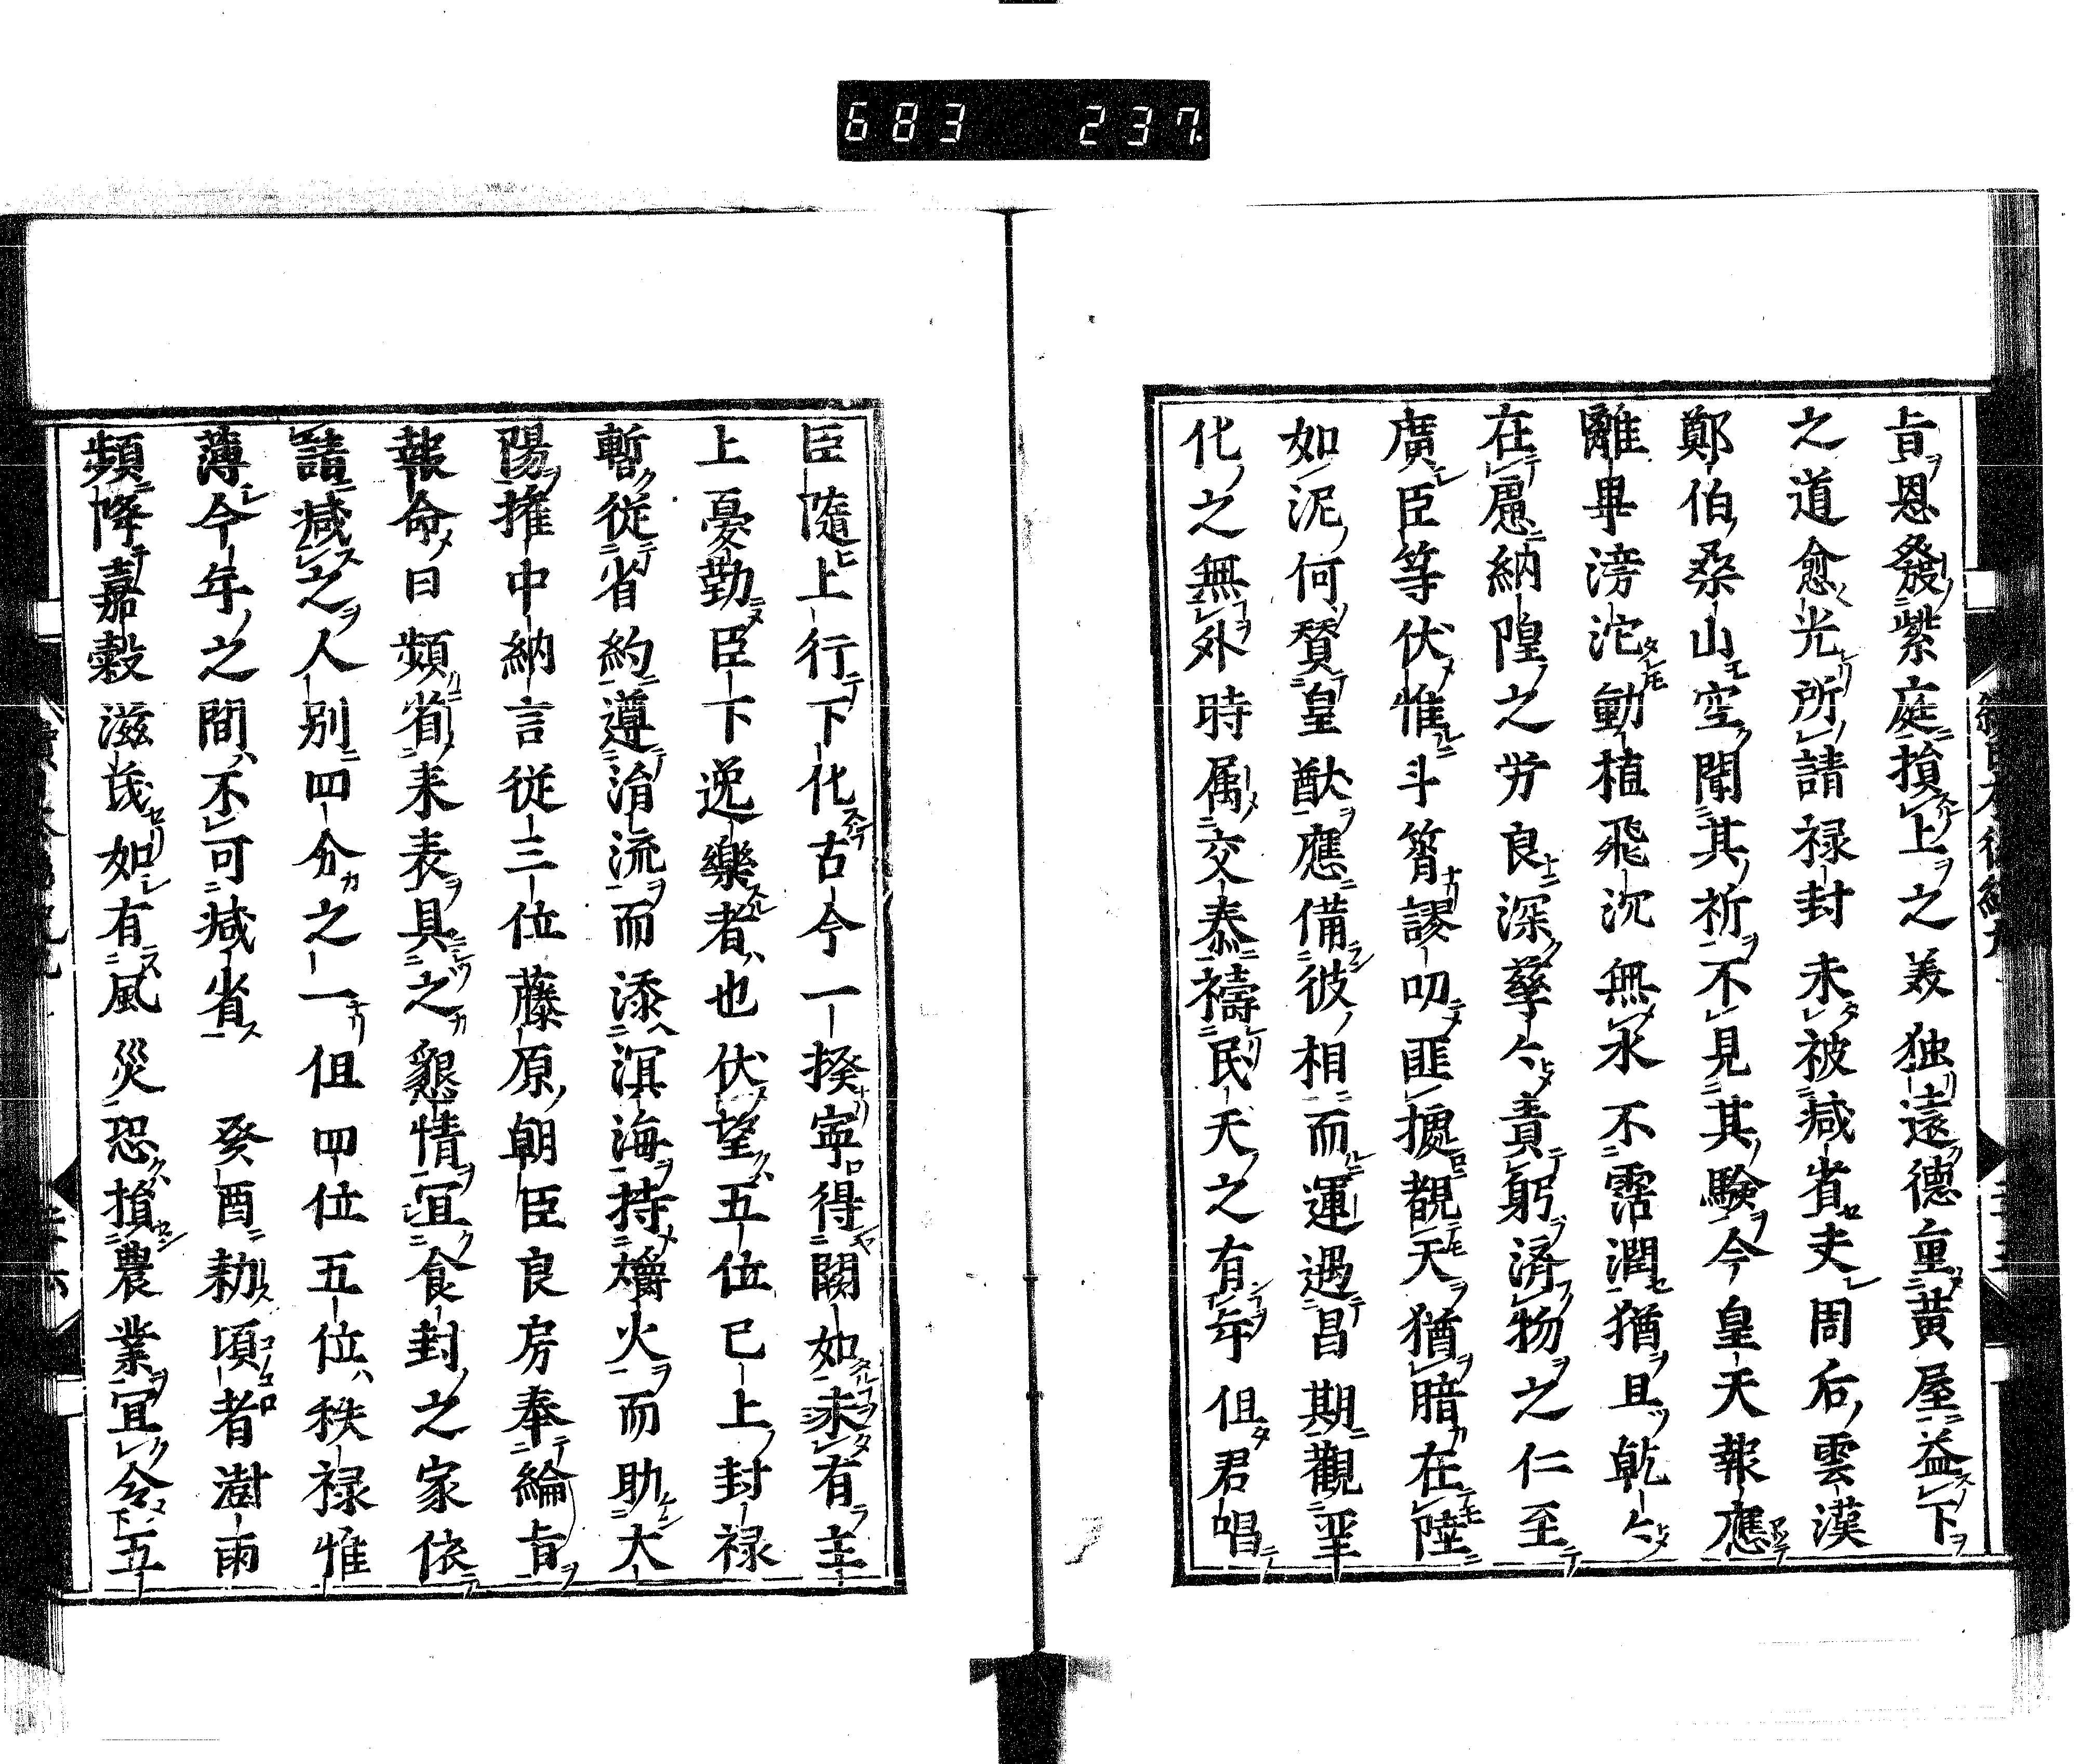 683 237
旨恩發紫庭損上之美独遠德重黃屋益下
之道愈光所請禄封未被减省夫周后雲漢
鄭伯桑山空聞其祈不見其驗今皇天報應
離畢滂沱動植飛沉無永不霑潤猶且乾々
在慮納隍之労良深孳々責躬済物之仁至
廣臣等伏惟斗筲謬叨匪據覩天猶暗在陸
如泥何賛皇猷應備彼相而運遇昌期觀平
化之無外時属交泰禱民天之有年伹君唱
臣隨上行下化古今一揆寧得闕如未有主
上憂勤臣下逸樂者也伏望五位已上封禄
暫從省約遵涓流而添溟海持爝火而助大
陽権中納言従三位藤原朝臣良房奉綸旨
報命曰頻省来表具之懇情冝食封之家依
請减之人別四分之一伹四位五位秩禄惟
薄今年之間不可减省 癸酉勑頃者澍雨
頻降嘉穀滋茂如有風災恐損農業冝令五